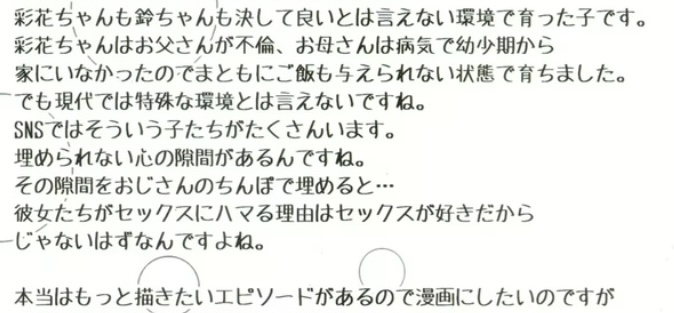 彩花ちゃんも鈴ちゃんも決して良いとは言えない環境で育った子です。
彩花ちゃんはお父さんが不倫、お母さんは病気で幼少期から
家にいなかったのでまともにご飯も与えられない状態で育ちました。
でも現代では特殊な環境とは言えないですね。
SNSではそういう子たちがたくさんいます。
埋められない心の隙間があるんですね。
その隙間をおじさんのちんぽで埋めると…
彼女たちがセックスにハマる理由はセックスが好きだから
じゃないはずなんですよね。
本当はもっと描きたいエピソードがあるので漫画にしたいのですが